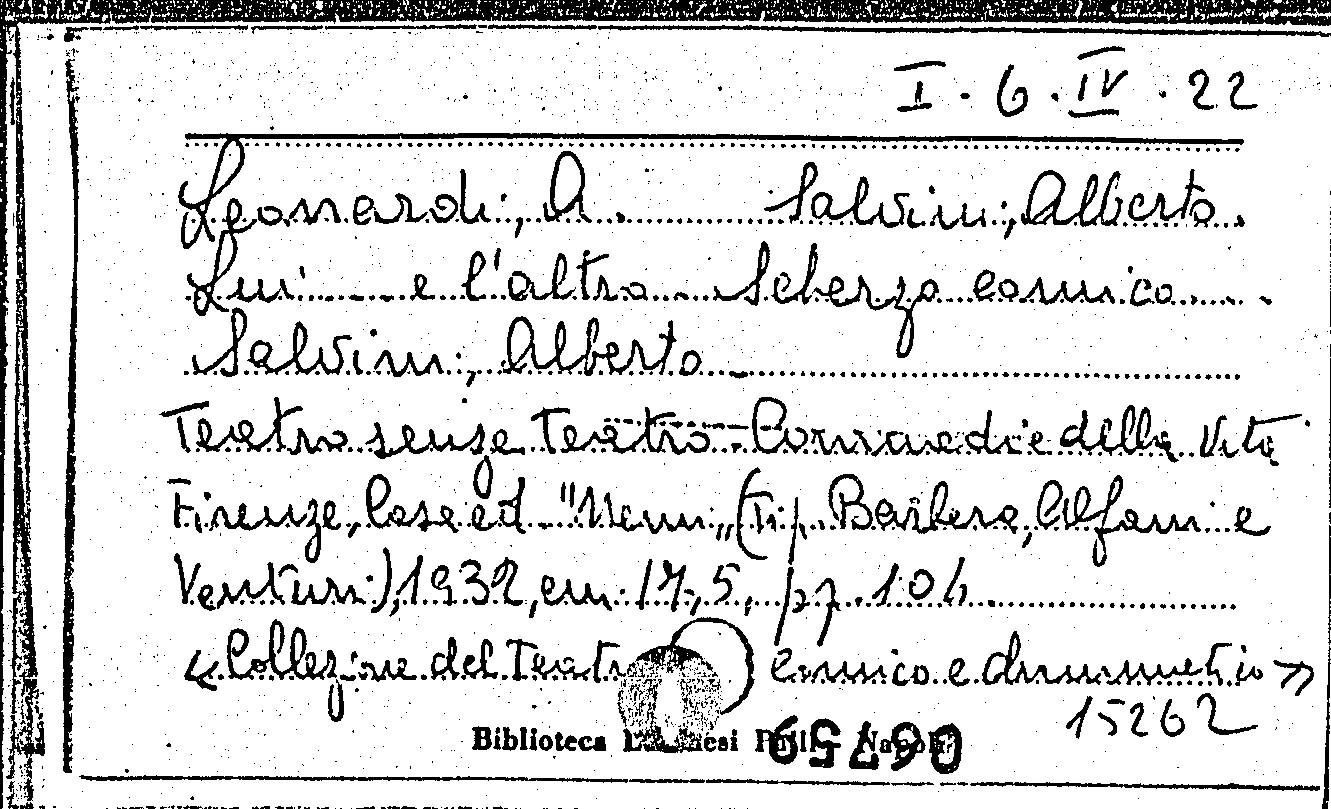 I. 6. IV. 22
Leonardi, A. Salvini, Alberto.
Lui e l'altro Scherzo comico.
Salvini, Alberto -
Teatro senza Teatro - Commedie della Vita
Firenze, Casa ed. "Nemi" (Tip. Barbera, Alfani e
Venturi), 1932, cm. 17,5, pp. 104
«Collezione del Teatro comico e drammatico»
15262
Biblioteca Lucchesi Palli - Napoli
06759